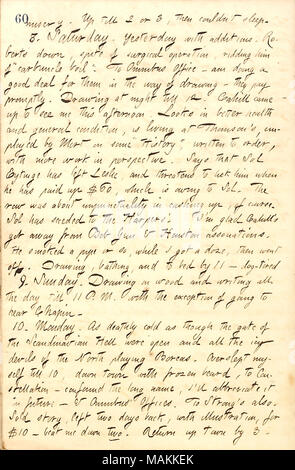 60
misery. Up till 2 or 3, then couldn't sleep.
8. Saturday. Yesterday with additions. Ro-
berts down, spoke of surgical operation ridding him
of "carbuncle boil." To Omnibus Office — am doing a
good deal for them in the way of drawing — they pay
promptly. Drawing at night till 12. Cahill came
up to see me this afternoon. Looks in better health
and general condition, is living at Thomson's, em-
ployed by Mort on some "History" written to order,
with more work in perspective. Says that Sol
Eytinge has left Leslie, and threatens to lick him when
he has paid up $60, which is owing to Sol. The
row was about unpunctuality in cashing up, of course.
Sol has seceded to the Harpers. I'm glad Cahill's
got away from Bob Gun & Houston associations.
He smoked a pipe or so, while I got a doze, then went
off. Drawing, bathing, and to bed by 11 — dog-tired
9. Sunday. Drawing on wood and writing all
the day till 11 P.M. with the exception of going to
hear Chapin.
10. Monday. As deathly cold as though the gate of
the Scandinavian Hell were open and all the icy
devils of the North playing Boreas. Overslept my-
self till 10, down town with frozen beard, to Con-
stellation — confound the long name, I'll abbreviate it
in future — & Omnibus Offices. To Strong's also.
Sold story, left two days back, with illustration, for
$10 — beat me down two. Return up town by 3 -
alamy
MAKKEK